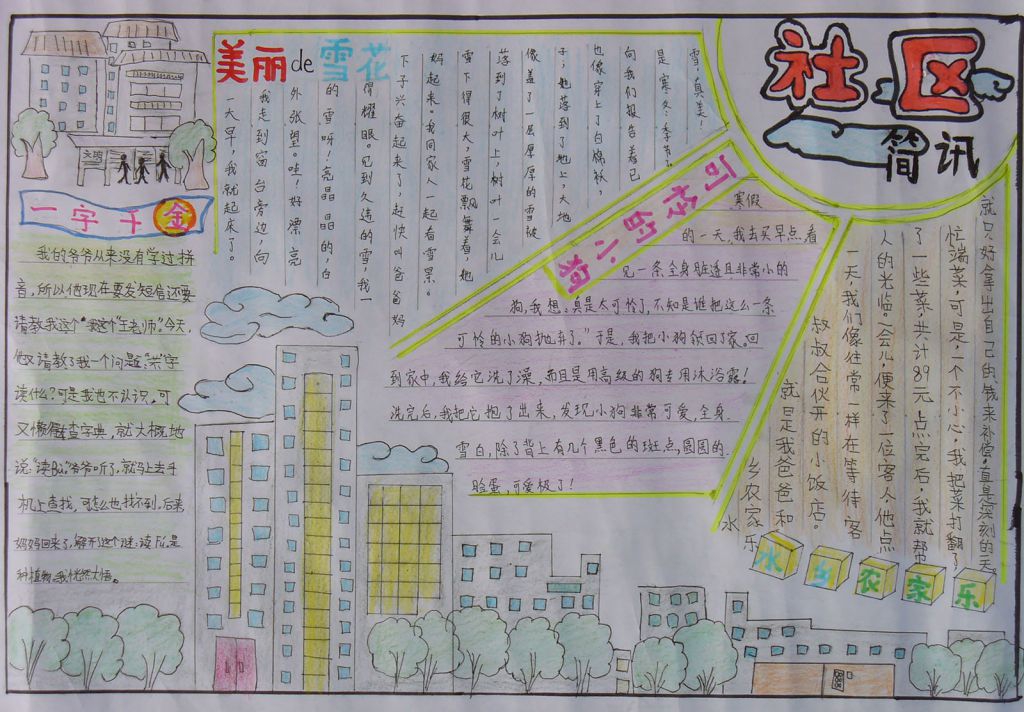 社区
简讯
美丽de雪花
一天早,我就起床了。
我走到窗台旁边,向
外张望。哇!好漂亮
的雪呀!亮晶晶的,白
得耀眼。见到久违的雪,我一
下子兴奋起来了,赶快叫爸爸妈
妈起来,我同家人一起看雪景。
雪下得很大,雪花飘舞着,她
落到了树叶上,树叶一会儿
像盖了一层厚厚的雪被
子;她落到了地上,大地
也像穿上了白棉袄,
向我们报告着已
是寒冬季节了
雪真美!
一字千金
我的爷爷从来没有学过拼
音,所以他现在要发短信还要
请教我这个"王老师"。今天,
他又请教了我一个问题:
读什么?可是我也不认识。可
又懒得去查字典,就大概地
说:爷爷听了,就马上去手
机上查找,可怎么也找不到。后来
妈妈回来了,解开这个谜:读 是
种植物。我恍然大悟。
可怜的小狗
寒假
的一天,我去买早点,看
见一条全身脏透且非常小的
狗,我想:真是太可怜了,不知是谁把这么一条
可怜的小狗抛弃了。"于是,我把小狗领回了家。回
到家中,我给它洗了澡,而且是用高级的狗专用沐浴露!
洗完后,我把它抱了出来,发现小狗非常可爱,全身
雪白,除了背上有几个黑色的斑点,圆圆的
脸蛋,可爱极了!
水乡农家乐
水
乡农家乐
就是我爸爸和
叔叔合伙开的小饭店。
一天,我们像往常一样在等待客
人的光临。一会儿,便来了一位客人他点
了一些菜共计89元,点完后,我就帮
忙端菜,可是,一个不小心,我把菜打翻了
就只好拿出自己的钱来补偿,真是深刻的一天